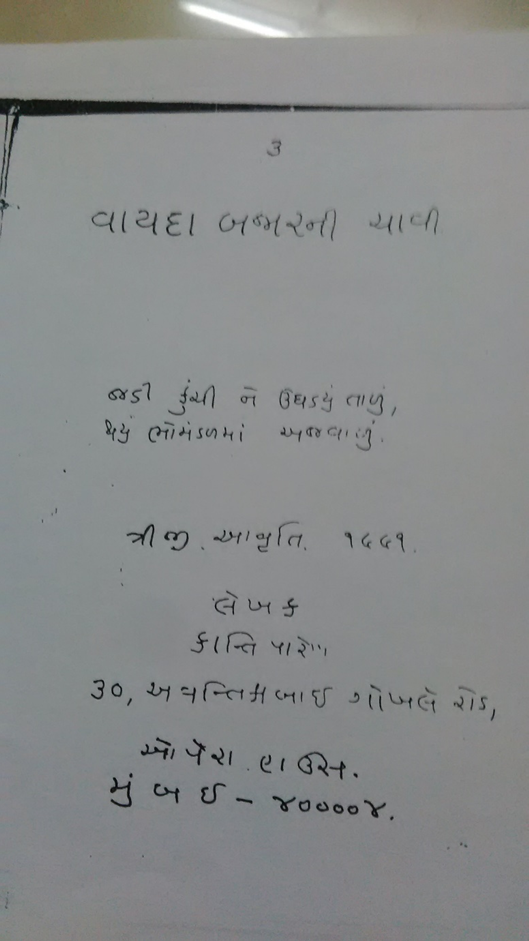 3
વાયદા બજારની ચાવી
જડી કુંચી ને ઉઘડયું તાળું,
થયું ભોમંડળમાં અજવાળું.
ત્રીજી. આવૃતિ. ૧૯૯૧.
લેખક
કાન્તિ પારેખ
30, અવન્તિકાબાઈ ગોખલે રોડ,
ઓપેરા હાઉસ.
મુંબઈ - ૪૦૦૦૦૪.